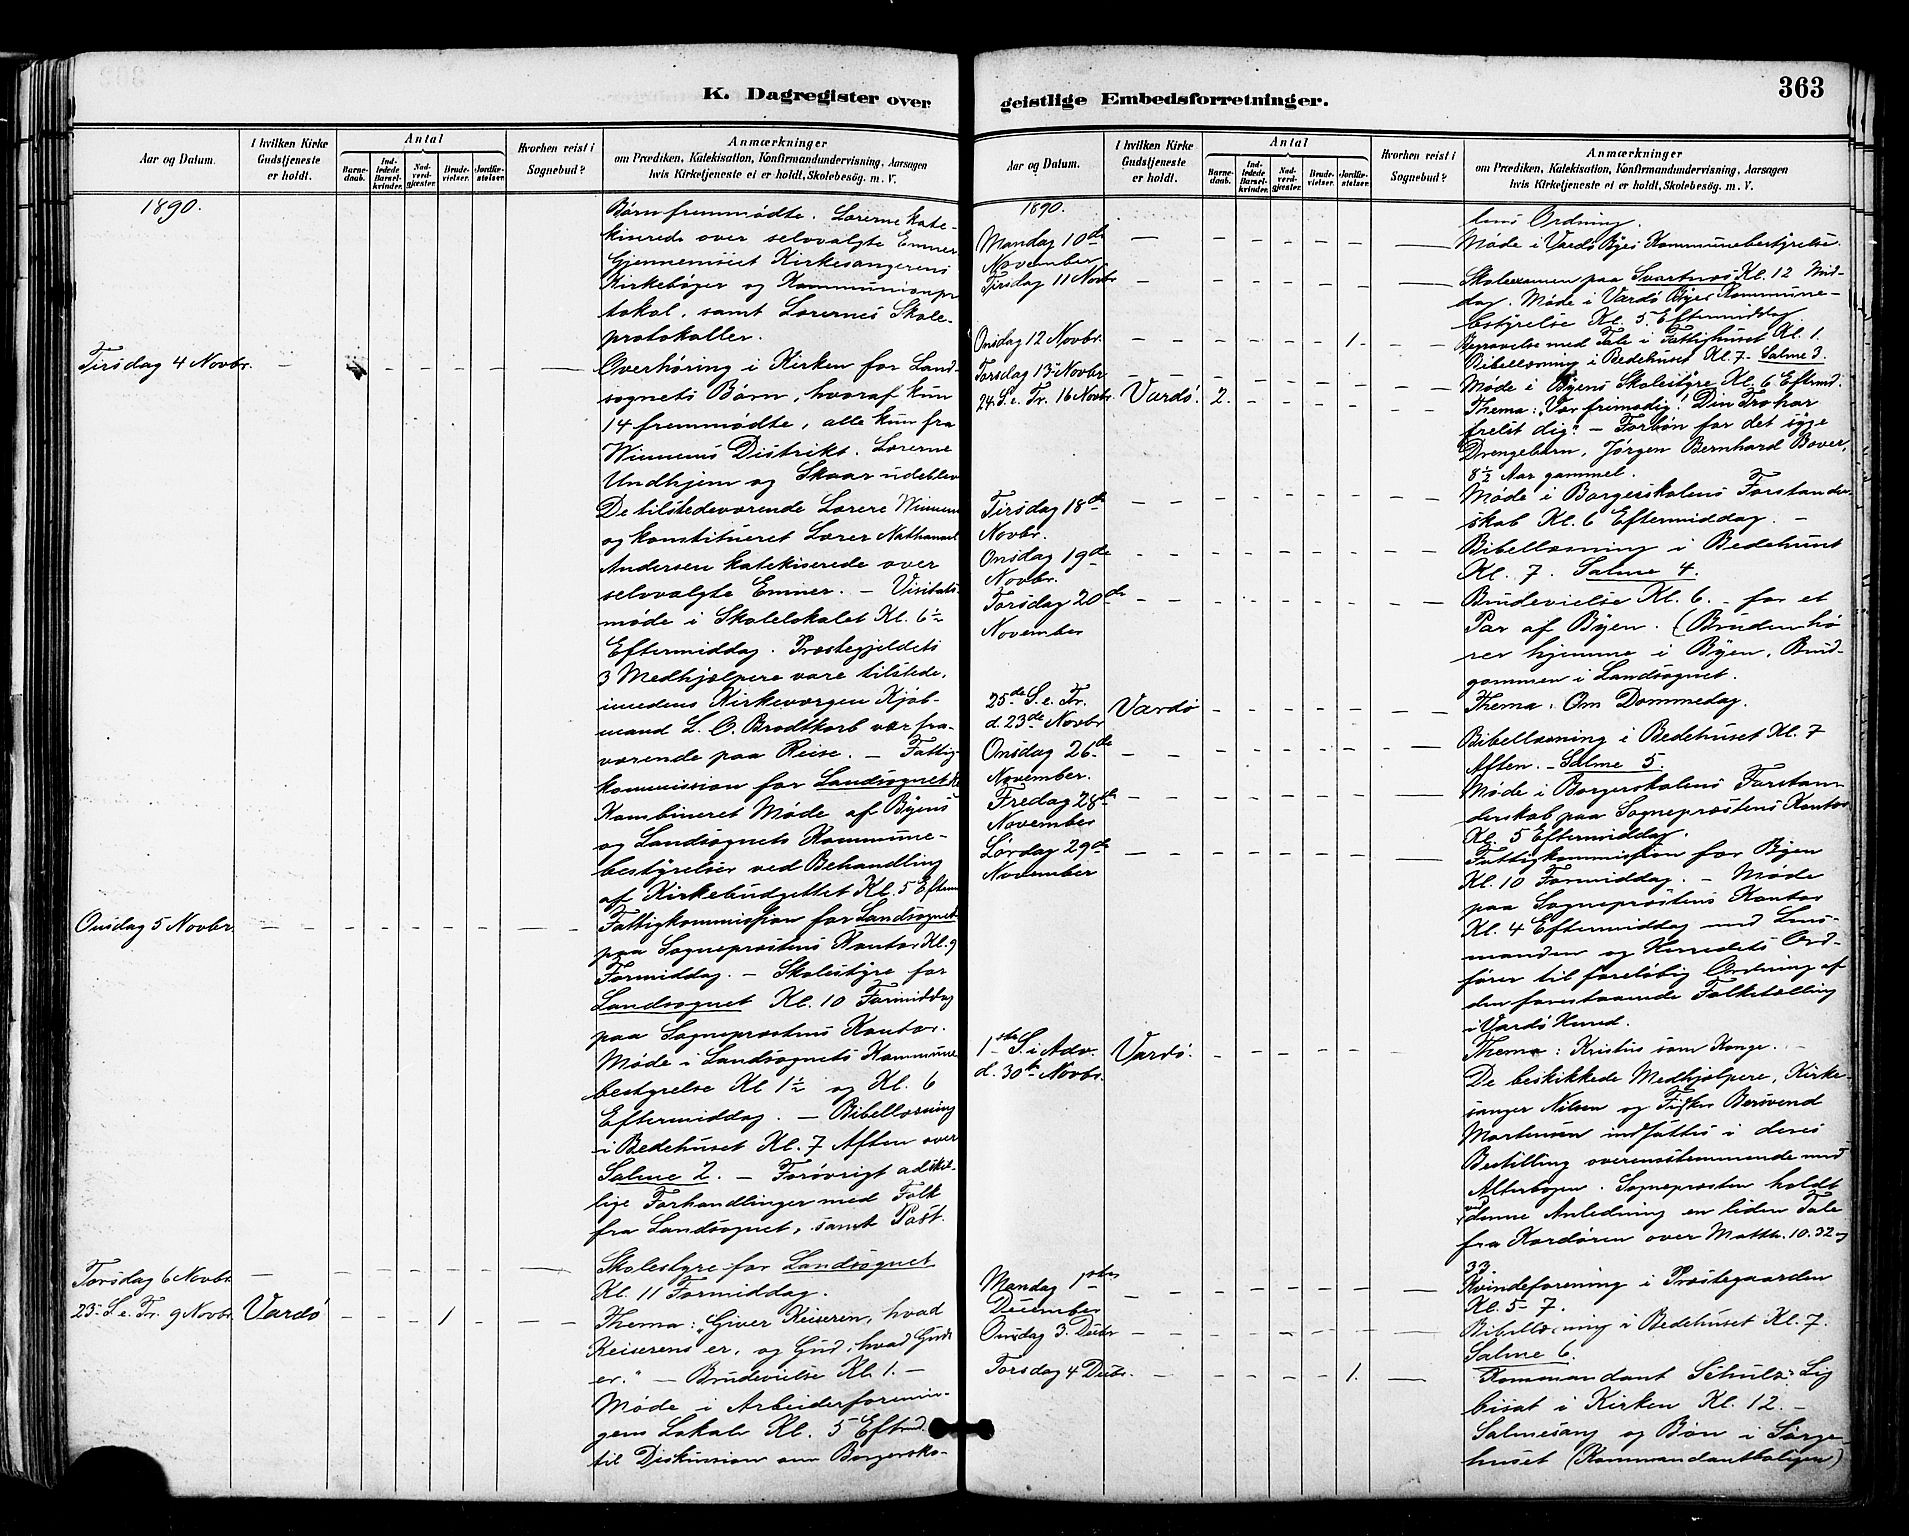 K. Dagregister over
Aar og Datum.
I hvilken Kirke Gudstjeneste er holdt.
Antal
Barnedaab.
Indledede Barselkvinder.
Nadverdgjæster.
Brudevielser.
Jordfæstelser.
Hvorhen reist i Sognebud?
Anmærkninger
om Prædiken, Katekisation, Konfirmandundervisning, Aarsagen
hvis Kirketjeneste ei er holdt, Skolebesøg. m. V.
1890.
Børn fremmødte. Lærerne kate-
kiserede over selvvalgte Emner
Gjennemseet Kirkesangerens
Kirkebøger og Kommunionpr
tokol, samt Lærernes Skole-
protokoller.
Tirsdag 4 Novbr. — — — — — — —
Overhøring i Kirken for Land-
sognets Børn, hvoraf kun
14 fremmødte, alle kun fra
Winnems Distrikt. Lærerne
Undhjem og Skaar udeblev
De tilstedeværende Lærere Winnem
og konstitueret Lærer Nathanael
Andersen katekiserede over
selvvalgte Emner. — Visitats-
møde i Skolelokalet Kl. 6½
Eftermiddag. Præstegjeldets
3 Medhjælpere vare tilstede,
imedens Kirkeværgen Kjøb-
mand L. O. Brodtkorb var fra-
værende paa Reise. — Fattig-
kommission for Landsognet
Kombineret Møde af Byens
og Landsognets Kommune-
bestyrelser ved Behandling
af Kirkebudgettet Kl. 5 Efterm
Onsdag 5 Novbr. — — — — — — —
Fattigkommission for Landsognet
paa Sognepræstens Kontor Kl. 9
Formiddag. — Skolestyre for
Landsognet Kl. 10 Formiddag
paa Sognepræstens Kontor.
Møde i Landsognets Kommune
bestyrelse Kl 1½ og Kl. 6
Eftermiddag. — Bibellæsning
i Bedehuset Kl. 7 Aften over
Salme 2. — Forøvrigt adskil-
lige Forhandlinger med Folk
fra Landsognet, samt Post.
Torsdag 6 Novbr. — — — — — — —
Skolestyre for Landsognet
Kl. 11 Formiddag.
23. S. e. Tr. 9 Novbr. Vardø — — — 1 — —
Thema: "Giver Keiseren, hvad
Keiserens er, og Gud, hvad Guds
er." — Brudevielse Kl. 1. —
Møde i Arbeiderforenin-
gens Lokale Kl. 5 Eftmd.
til Diskussion om Borgersko-
geistlige Embedsforretninger.
363
Aar og Datum.
I hvilken Kirke Gudstjeneste er holdt.
Antal
Barnedaab.
Indledede Barselkvinder.
Nadverdgjæster.
Brudevielser.
Jordfæstelser.
Hvorhen reist i Sognebud?
Anmærkninger
om Prædiken, Katekisation, Konfirmandundervisning, Aarsagen
hvis Kirketjeneste ei er holdt, Skolebesøg. m. V.
1890.
lens Ordning.
Mandag 10de November — — — — — — —
Møde i Vardø Byes Kommunebestyrelse.
Tirsdag 11 Novbr — — — — — — —
Skoleexamen paa Svartnæs Kl. 12 Mid-
dag. Møde i Vardø Byes Kommune-
bestyrelse Kl. 5. Eftermiddag
Onsdag 12 Novbr. — — — — — 1. —
Begravelse med Tale i Fattighuset Kl. 1.
Bibellæsning i Bedehuset Kl. 7 - Salme 3.
Torsdag 13 Novbr — — — — — — —
Møde i Byens Skolestyre Kl. 6 Eftmid.
24. S. e. Tr. 16 Novbr. Vardø. 2. — — — — —
Thema: "Vær frimodig! Din Tro har
frelst dig." — Forbøn for det syge
Drengebarn, Jørgen Bernhard Bover,
8½ Aar gammel.
Tirsdag 18de Novbr. — — — — — — —
Møde i Borgerskolens Forstander-
skab Kl. 6 Eftermiddag. —
Onsdag 19de Novbr. — — — — — — —
Bibellæsning i Bedehuset
Kl. 7. Salme 4.
Torsdag 20de November — — — — — — —
Brudevielse Kl. 6. — for et
Par af Byen. (Bruden hø
rer hjemme i Byen, Brud-
gommen i Landsognet.
25de S. e. Tr. d. 23de Novbr Vardø — — — — — —
Thema: Om Dommedag.
Onsdag 26de November. — — — — — — —
Bibellæsning i Bedehuset Kl. 7
Aften. — Salme 5.
Fredag 28de November — — — — — — —
Møde i Borgerskolens Forstan
derskab paa Sognepræstens Kontor
Kl. 5 Eftermiddag.
Lørdag 29de November — — — — — — —
Fattigkommission for Byen
Kl. 10 Formiddag. — Møde
paa Sognepræstens Kontor
Kl. 4 Eftermiddag med Lens-
manden og Herredets Ord-
fører til foreløbig Ordning af
den forestaaende Folketælling
i Vardø Herred.
1ste S. i Adv. d. 30te Novbr. Vardø. — — — — — —
Thema: Kristus som Konge. —
De beskikkede Medhjælpere, Kirke-
sanger Nilsen og Fisker Bersvend
Mortensen indsattes i deres
Bestilling overensstemmende med
Alterbogen. Sognepræsten holdt
ved denne Anledning en liden Tale
fra Kordøren over Matth. 10. 32 og
33.
Mandag 1ste December — — — — — — —
Kvindeforening i Præstegaarden
Kl. 5-7.
Onsdag 3. Decbr — — — — — — —
Bibellæsning i Bedehuset Kl. 7.
Salme 6.
Torsdag 4 Decbr. — — — — — 1. —
Kommandant Schulz' Lig
bisat i Kirken Kl. 12. —
Salmesang og Bøn i Sørge-
huset (Kommandantboligen)